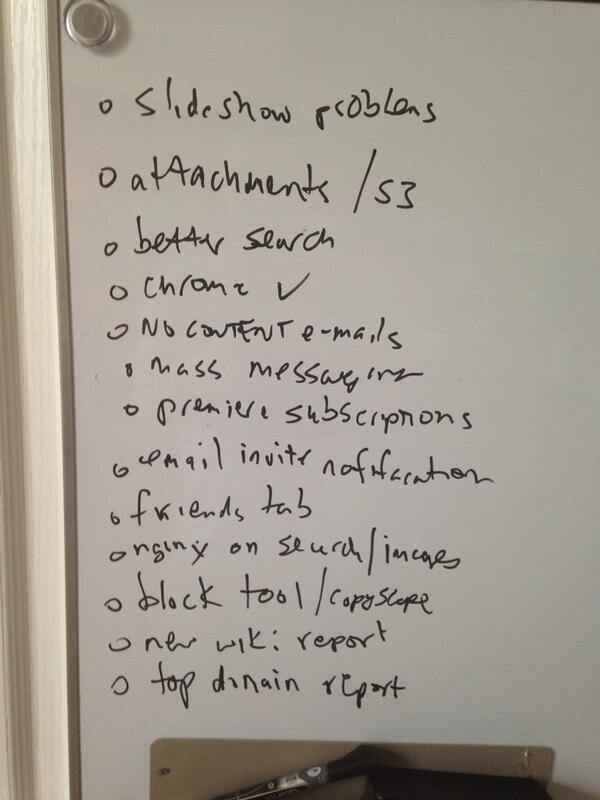 o slideshow problems
o attachments /S3
o better search
o chrome ✓
o NO CONTENT e-mails
o mass messaging
o premiere subscriptions
o email invite notifacation
o friends tab
o nginx on search/images
o block tool/copyscape
o new wiki report
o top domain report